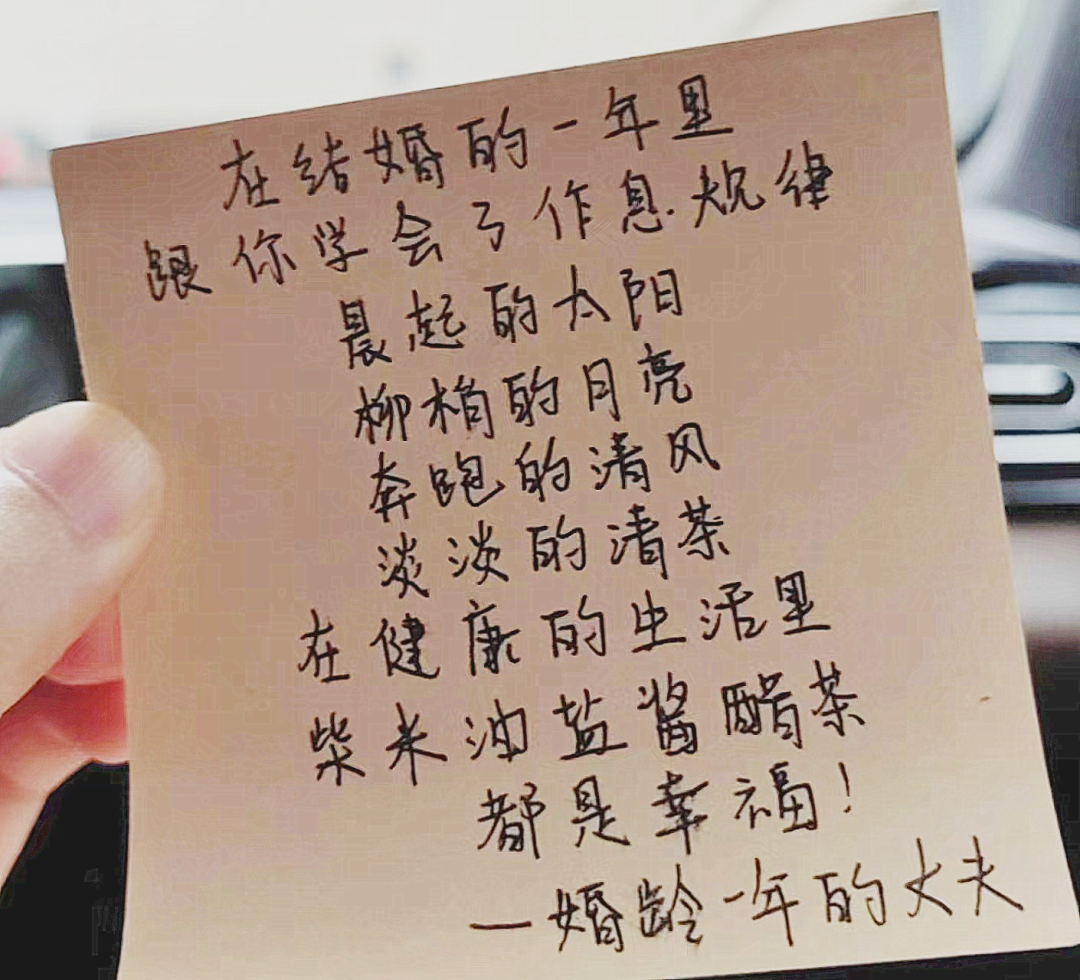 在结婚的一年里
跟你学会了作息规律
晨起的太阳
柳梢的月亮
奔跑的清风
淡淡的清茶
在健康的生活里
柴米油盐酱醋茶
都是幸福！
—婚龄一年的丈夫